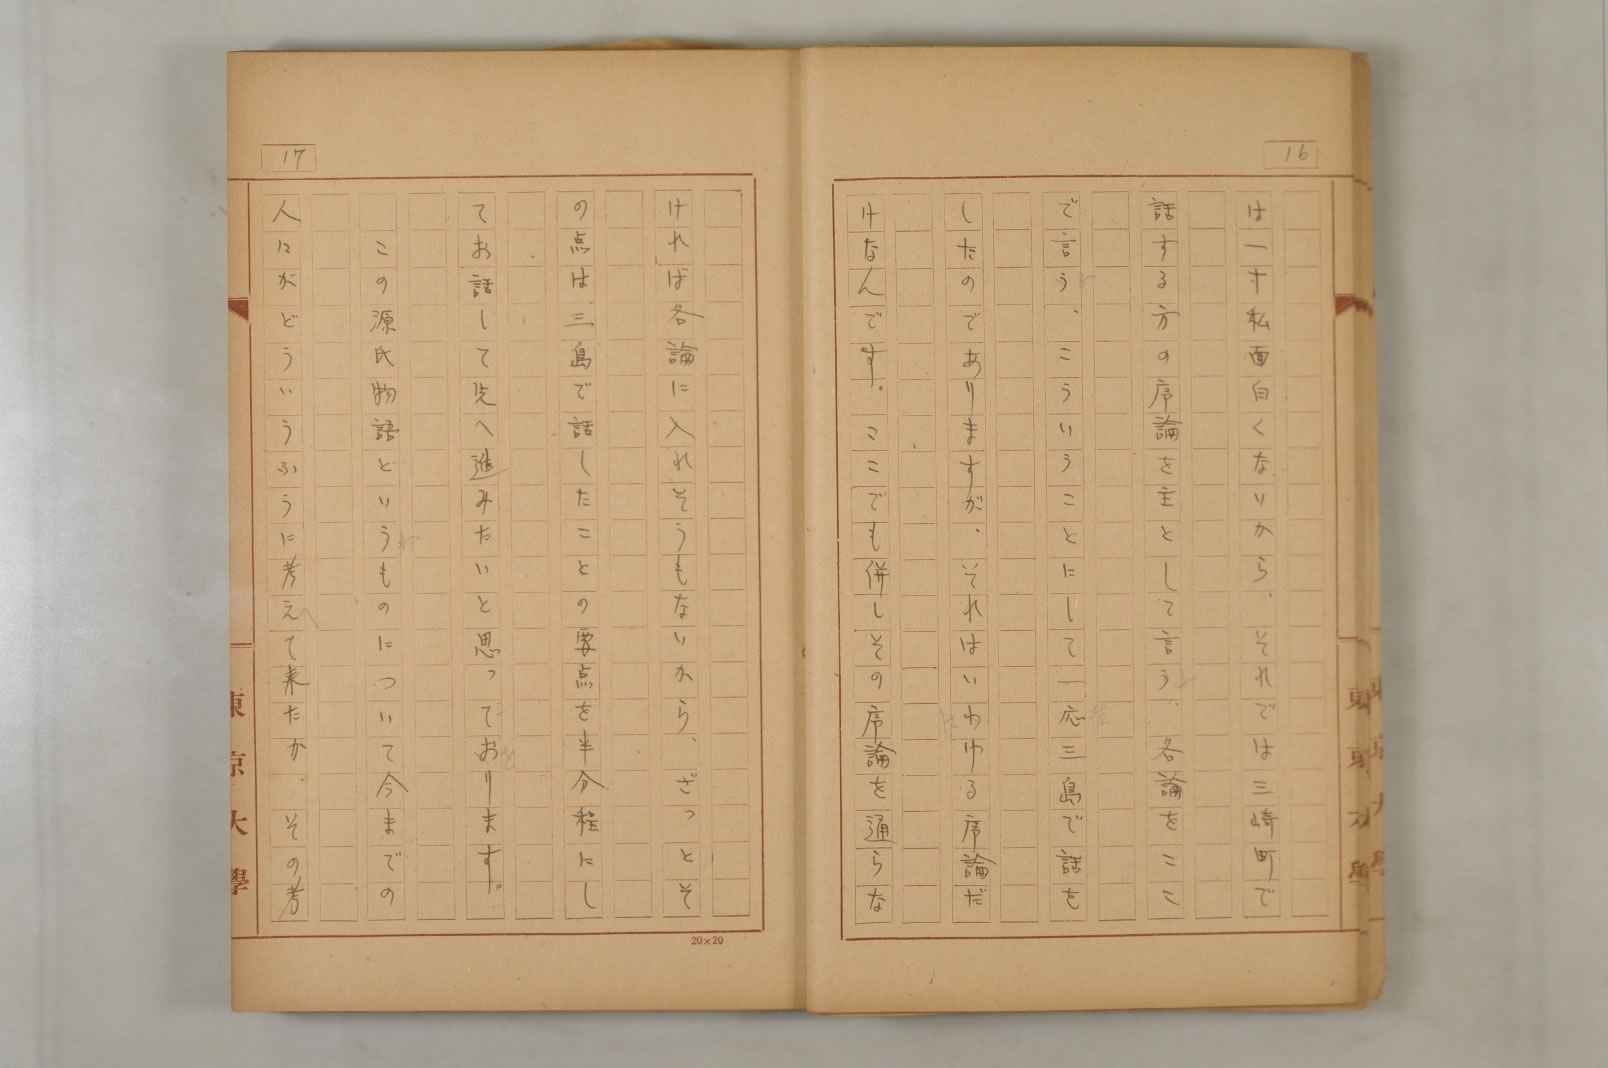 16
は一寸私面白くないから、それでは三崎町で
話する方の序論を主として言う、各論をここ
で言う、こういうことにして一応三島で話を
したのでありますが、それはいわゆる序論だ
けなんです。ここでも併しその序論を通らな
17
ければ各論に入れそうもないから、ざっとそ
の点は三島で話したことの要点を半分程にし
てお話して先へ進みたいと思っております。
この源氏物語というものについて今までの
人にがどういうふうに考えて来たか、その考
20×20
東京大學